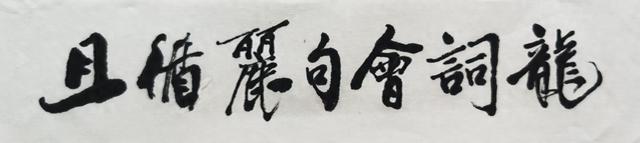 龍詞會句麗循且